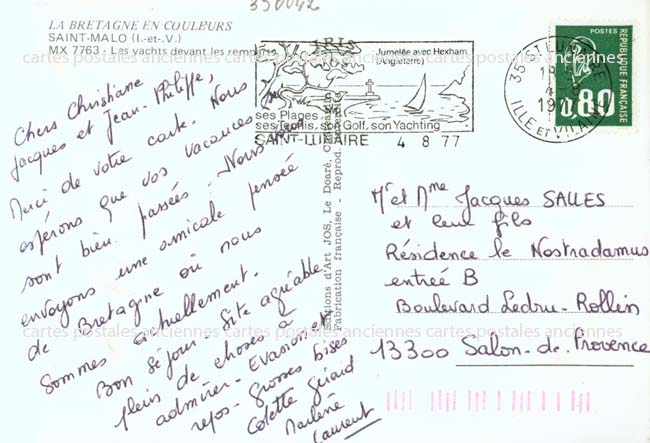 350042
LA BRETAGNE EN COULEURS
SAINT-MALO (I.-et-V.)
MX 7763 - Les yachts devant les remparts
Chers Christiane
Jacques et Jean-Philippe,
Merci de votre carte. Nous
espérons que vos vacances se
sont bien passées. Nous vous
envoyons une amicale pensée
de Bretagne où nous
sommes actuellement.
Bon séjour - Site agréable
pleins de choses à
admirer - Evasion et
repos - Grosses bises
Colette Gérard
Marlène
Laurent
Jumelée avec Hexham
(Angleterre)
ses Plages
ses Tennis, son Golf, son Yachting
SAINT-LUNAIRE 4 8 77
35 ST LUNAIRE
4-8
ILLE et VILAINE
POSTES
REPUBLIQUE FRANÇAISE
0,80
Editions d'Art JOS, Le Doaré, Châteaulin
Fabrication française - Reprod. interdite
Mr et Mme Jacques SALLES
et leur fils
Résidence le Nostradamus
entrée B
Boulevard Ledru-Rollin
13300 Salon-de-Provence
cartes postales anciennes cartes postales anciennes cartes postales anciennes
cartes postales anciennes cartes postales anciennes cartes postales anciennes